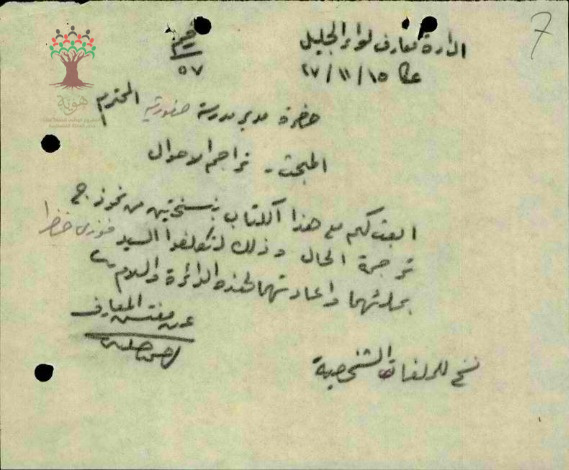 7
ادارة معارف لواء الجليل
عكا ٢٧/١١/١٥
٥٧
حضرة مدير مدرسة صفورية المحترم
المبحث - تراجم الاحوال
ابعث لكم مع هذا الكتاب بنسختين من نموذج
ترجمة الحال وذلك لتكلفوا السيد فوزي
بملئهما واعادتهما لهذه الدائرة والسلام
عن مفتش المعارف
نسخ للملفات الشخصية
هوية